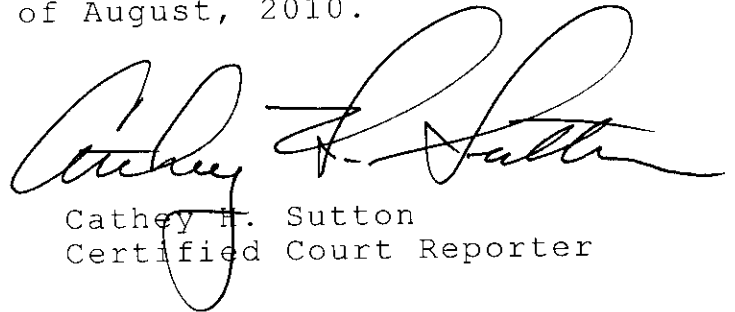 of August, 2010.
Cathey Sutton
Cathey H. Sutton
Certified Court Reporter